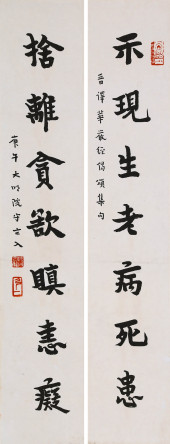 示現生老病死患
晉譯華嚴經偈頌集句
捨離貪欲瞋恚癡
庚午大